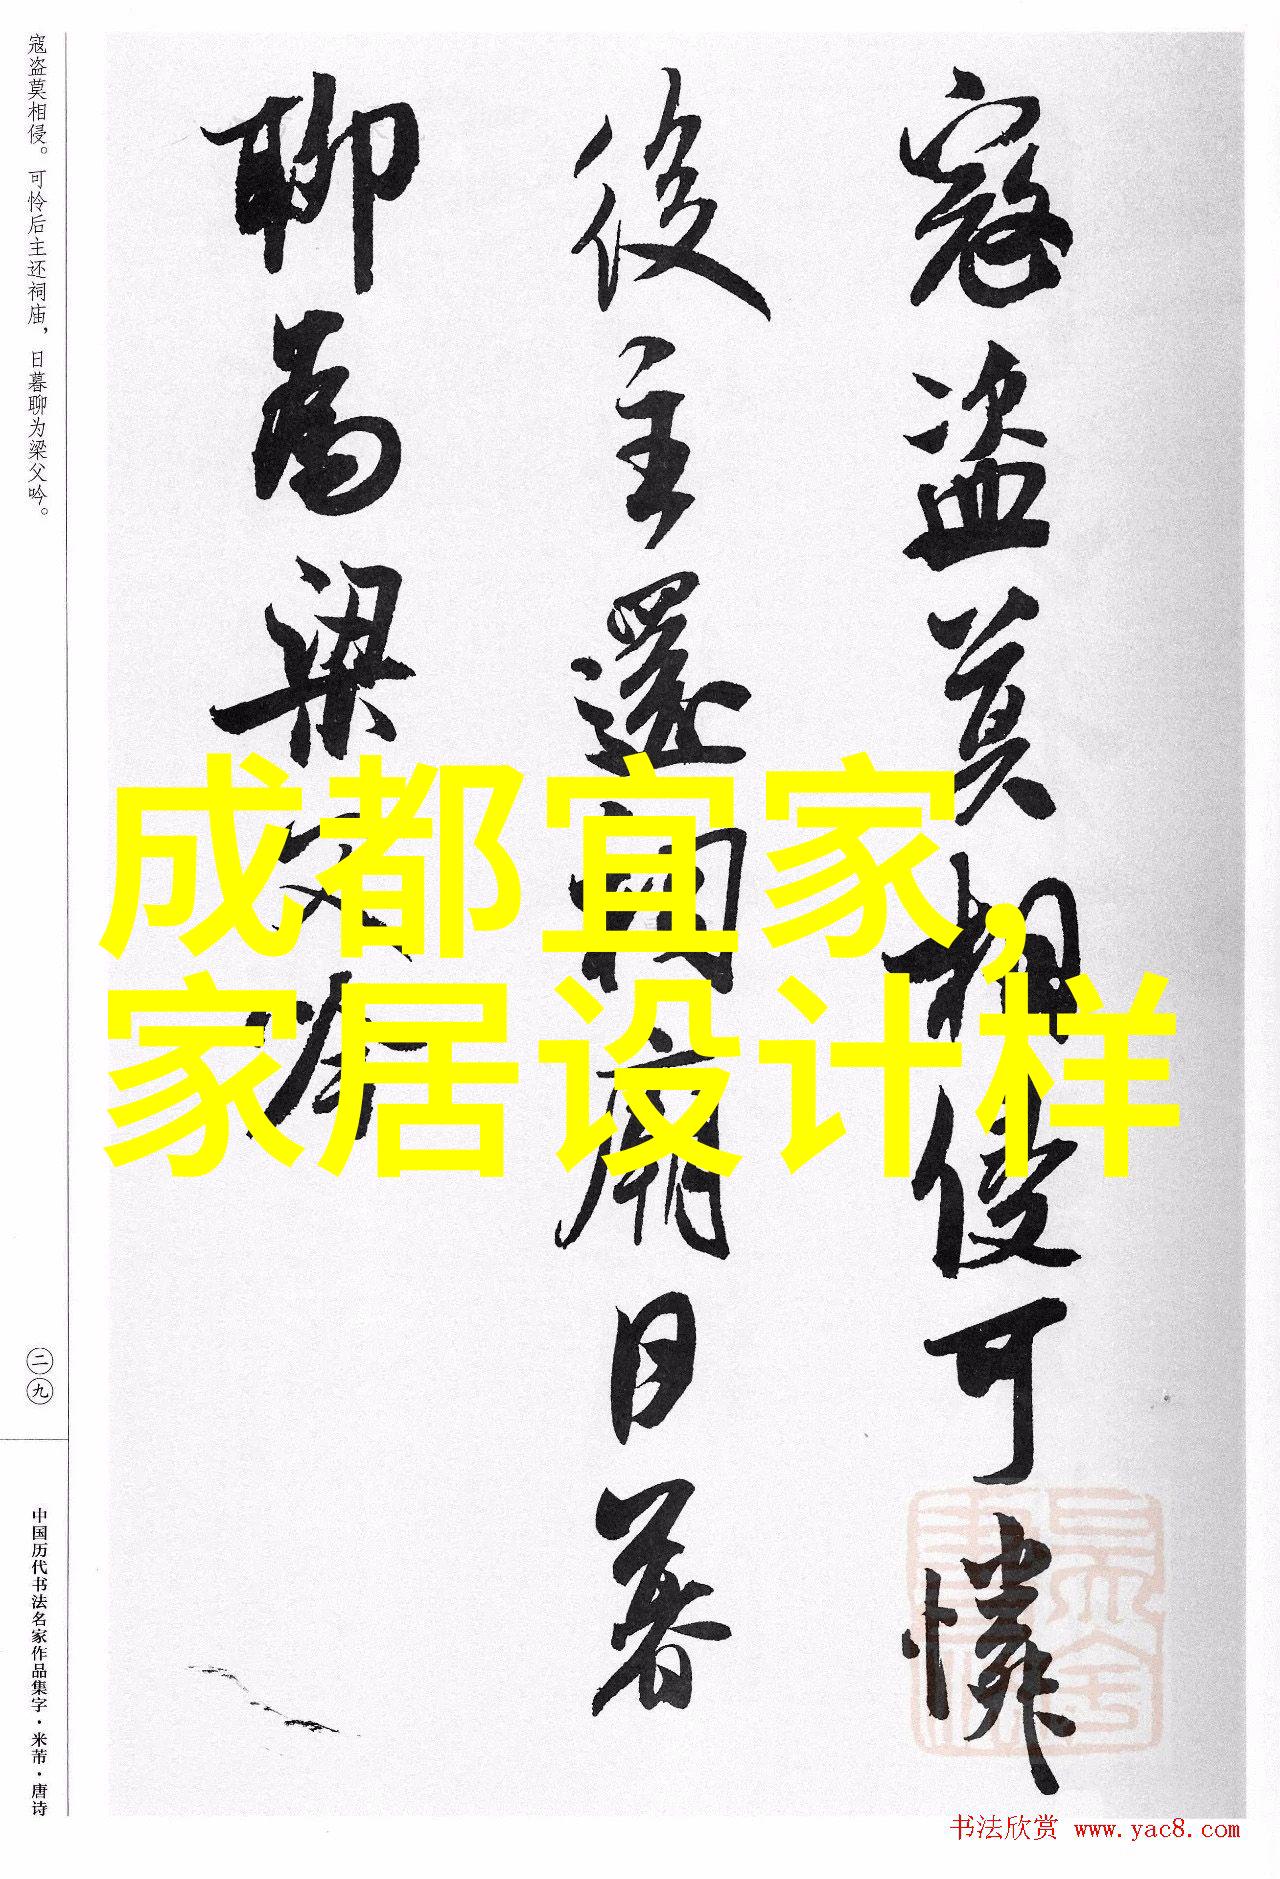 寇盗莫相侵可憐
後主還祠廟日暮
聊為梁父吟
寇盗莫相侵。可怜后主还祠庙，日暮聊为梁父吟。
二九
中国历代书法名家作品集字·米芾·唐诗
成都宜家，
家居设计样
书法欣赏 www.yac8.com